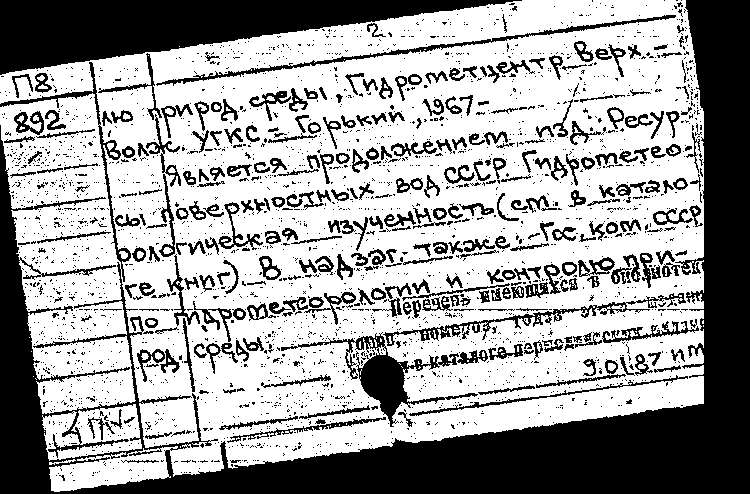 2.
П8
892
лю природ. среды, Гидрометцентр Верх.-
Волж УГКС.= Горький, 1967-
Является продолжением изд.: Ресур-
сы поверхностных вод СССР. Гидрометео-
рологическая изученность (см. в катало-
ге книг) В надзаг. также: Гос. ком. СССР
по гидрометеорологии и контролю при-
род. среды.
Перечень имеющихся в библиотеке
томов, номеров, годов этого издания
в каталоге периодических издани
9.01.87 нт